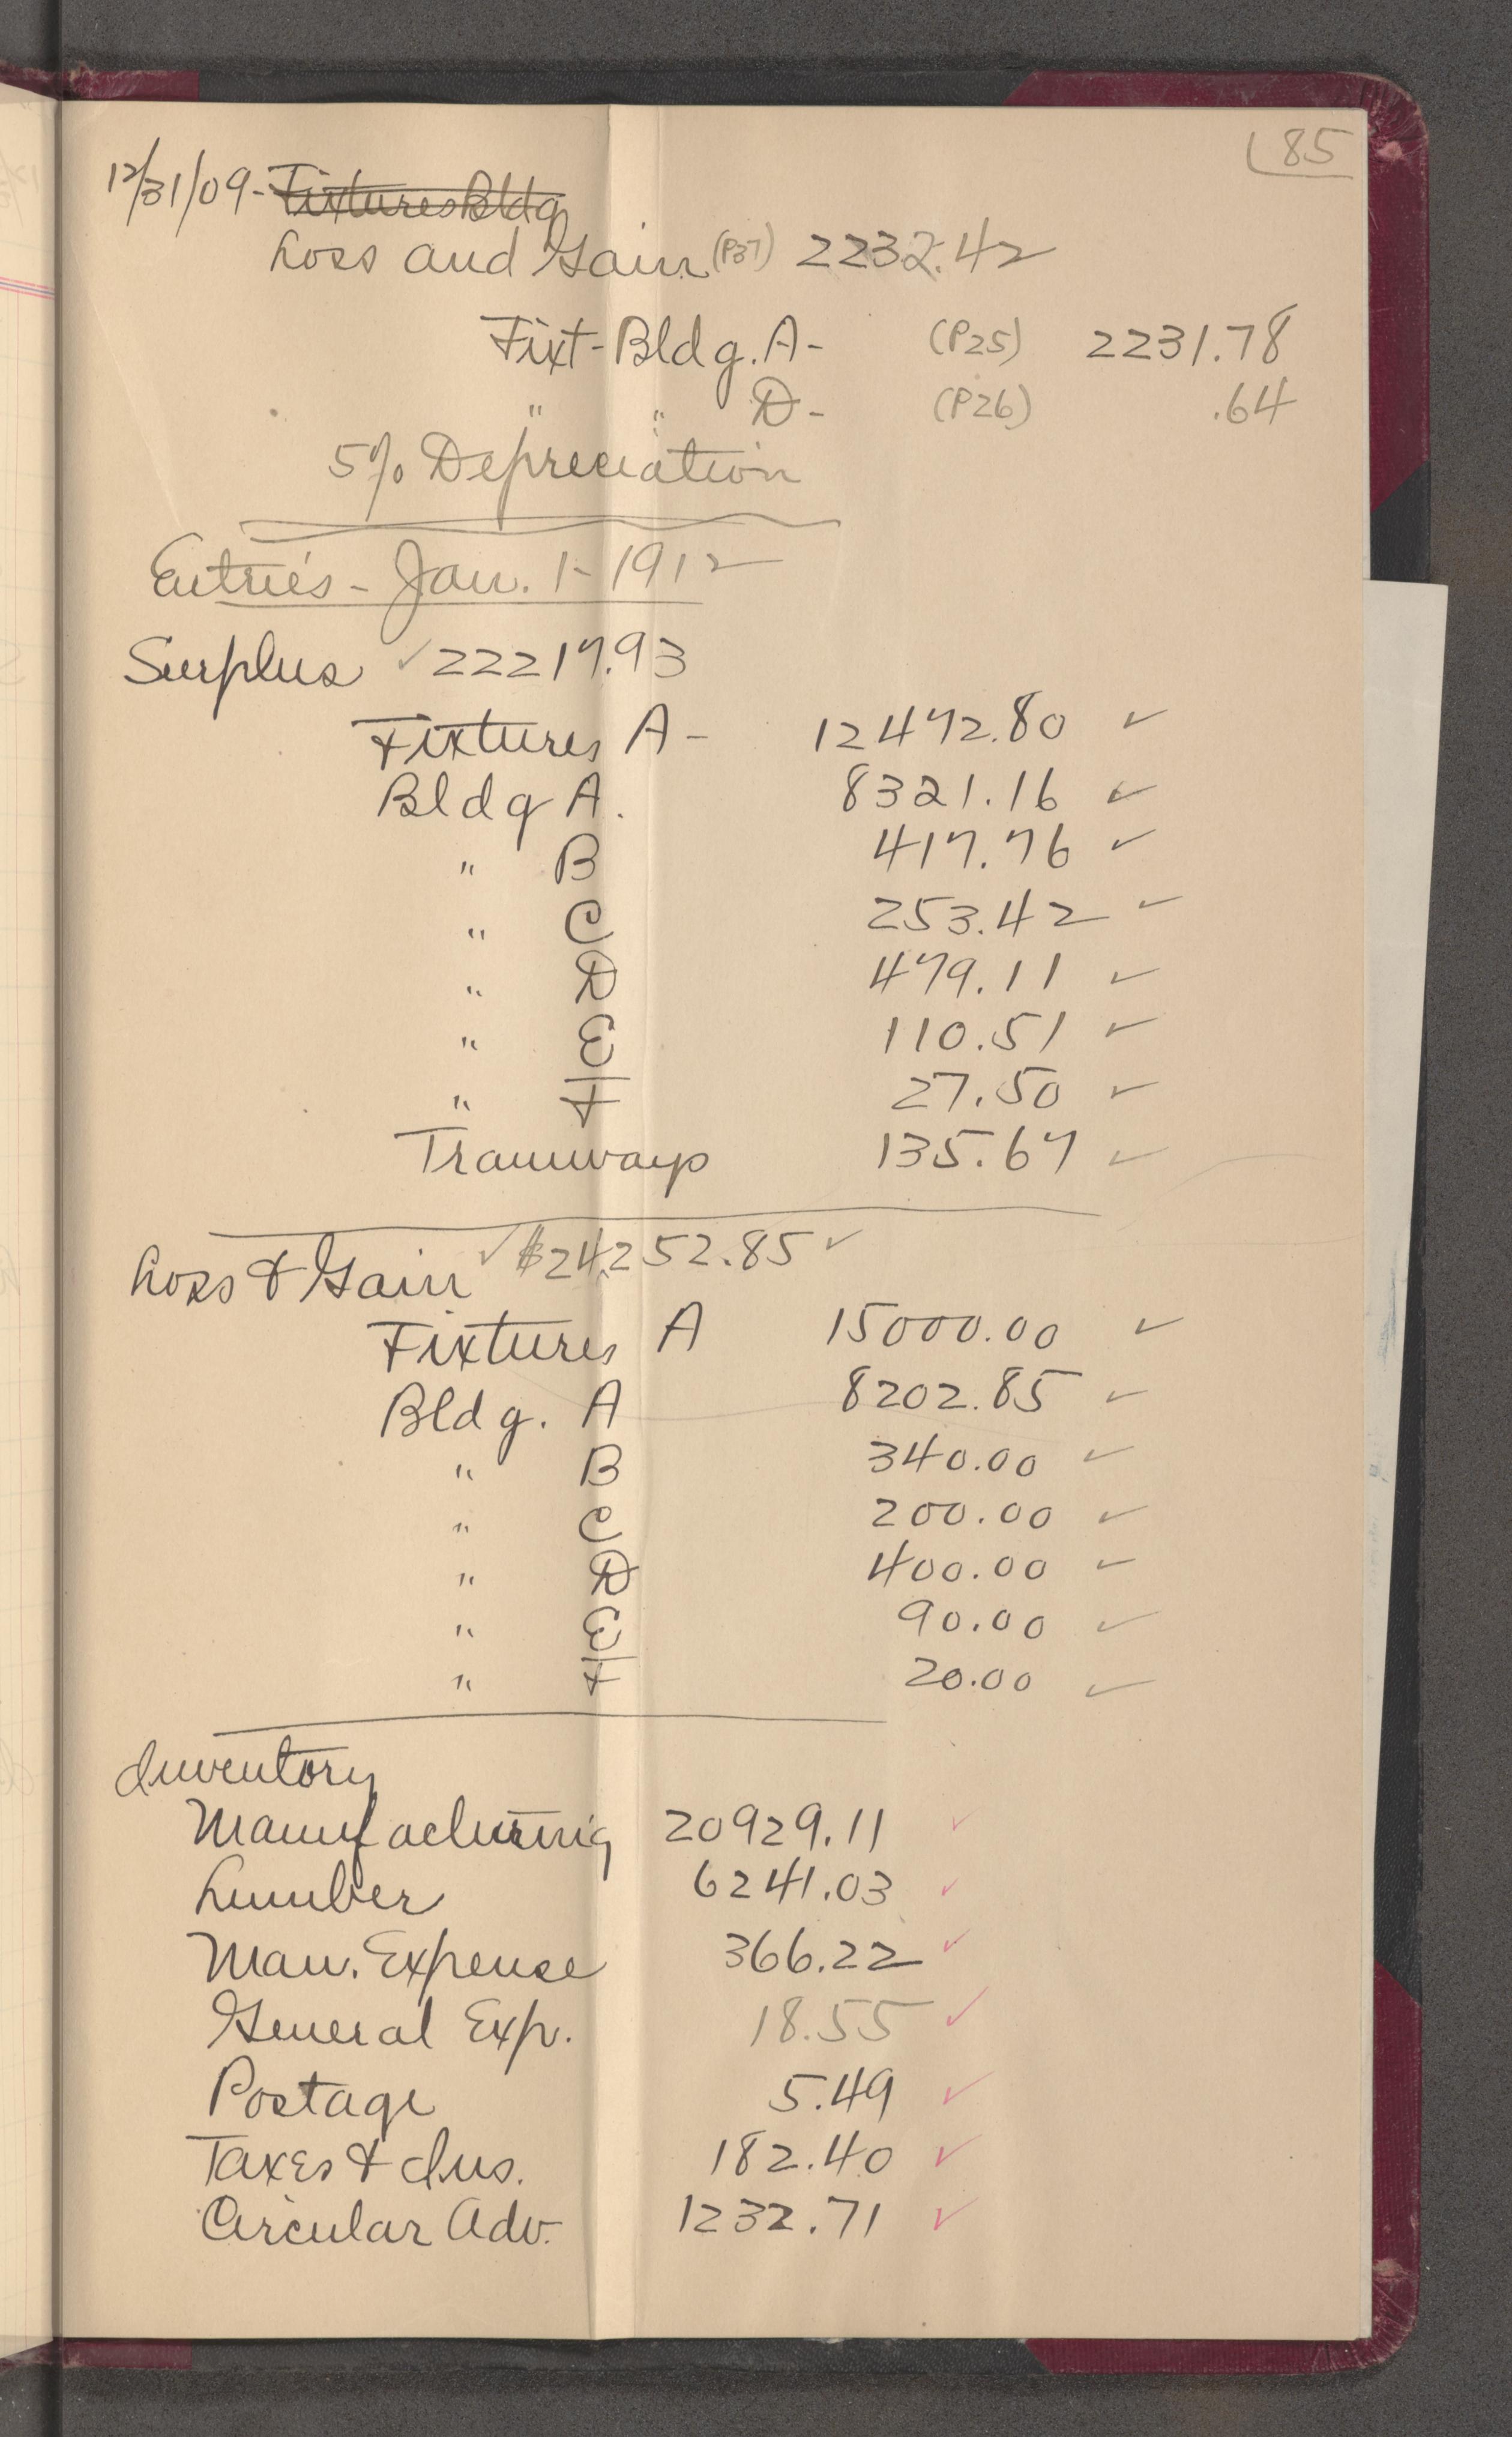 85
12/31/09- Fixtures Bldg
Loss and Gain (P37) 2232.42
Fixt-Bldg. A- (P25) 2231.78
" " D- (P26) .64
5% Depreciation
Entries - Jan. 1-1912
Surplus ✓ 22217.93
Fixtures A- 12472.80 ✓
Bldg A. 8321.16 ✓
" B 417.76 ✓
" C 253.42 ✓
" D 479.11 ✓
" E 110.51 ✓
" F 27.50 ✓
Tramways 135.67 ✓
Loss & Gain ✓ $24,252.85 ✓
Fixtures A 15000.00 ✓
Bldg. A 8202.85 ✓
" B 340.00 ✓
" C 200.00 ✓
" D 400.00 ✓
" E 90.00 ✓
" F 20.00 ✓
Inventory
Manufacturing 20929.11 ✓
Lumber 6241.03 ✓
Man. Expense 366.22 ✓
General Exp. 18.55 ✓
Postage 5.49 ✓
Taxes & Ins. 182.40 ✓
Circular Adv. 1232.71 ✓